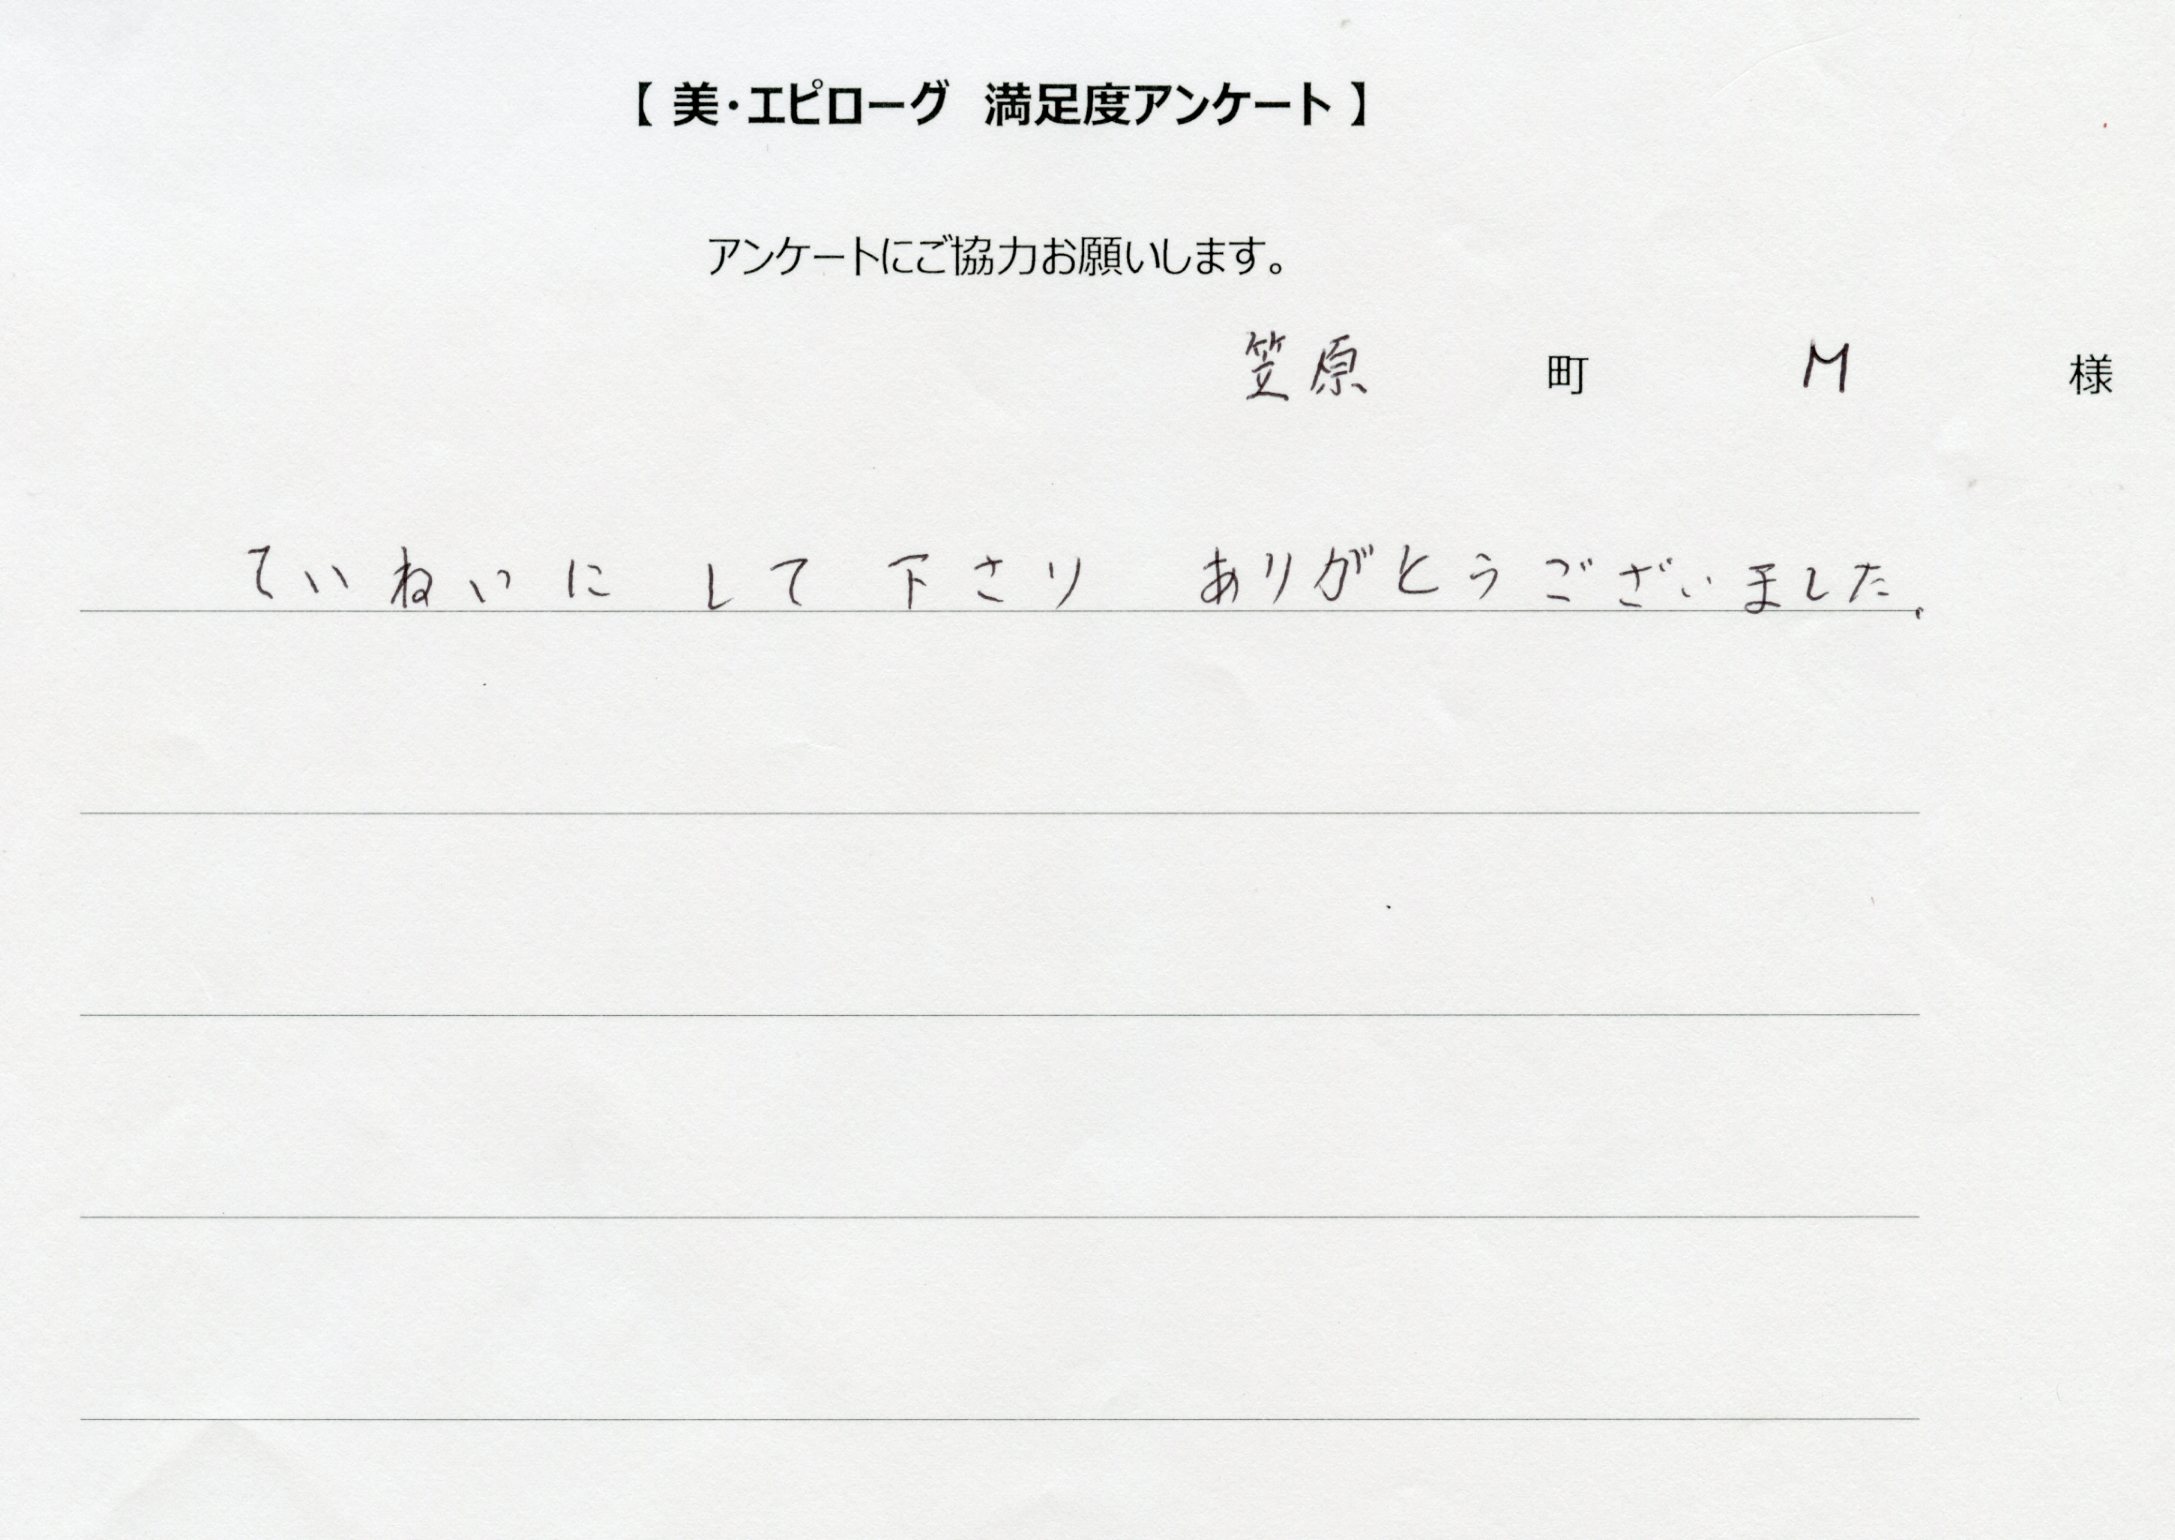 【 美・エピローグ　満足度アンケート 】
アンケートにご協力お願いします。
笠原　町　M　様
ていねいに して 下さり　ありがとうございました。